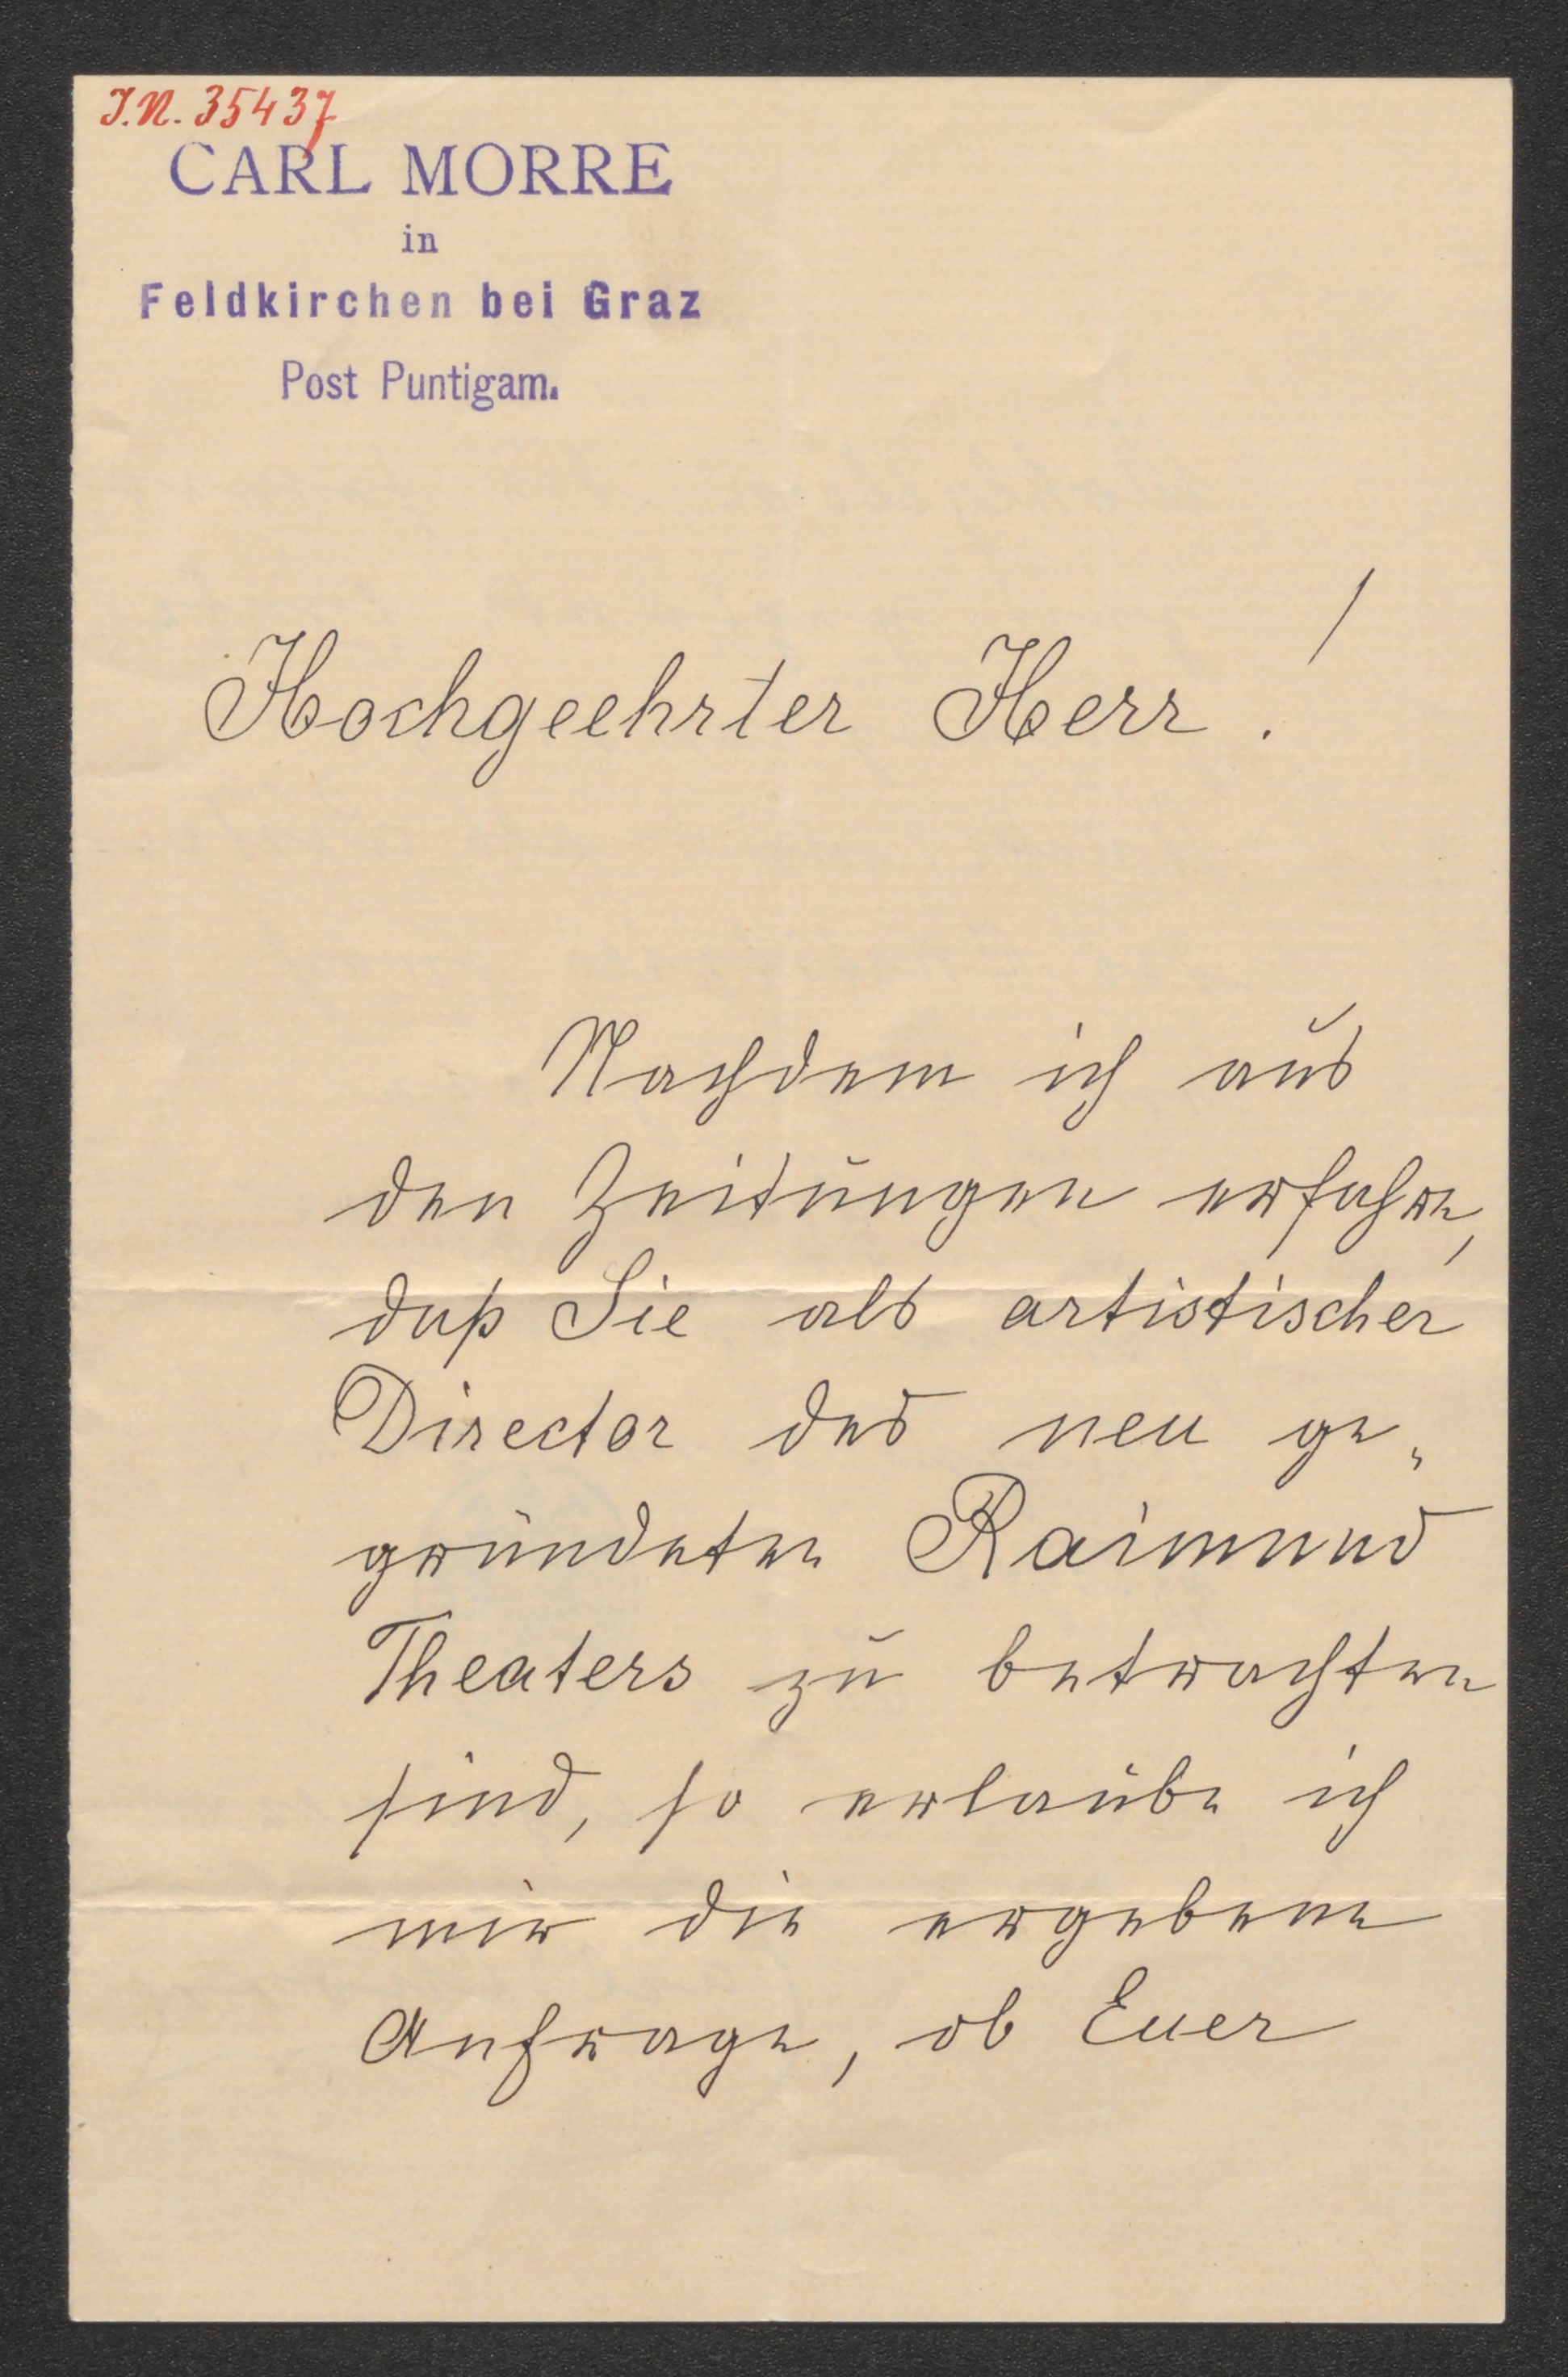 J.N. 35437
CARL MORRE
in
Feldkirchen bei Graz
Post Puntigam.
Hochgeehrter Herr!
Nachdem ich aus
den Zeitungen erfahre,
daß Sie als artistischer
Director des neu ge„
gründeten Raimund
Theaters zu betrachten
sind, so erlaube ich
mir die ergebene
Anfrage, ob Euer